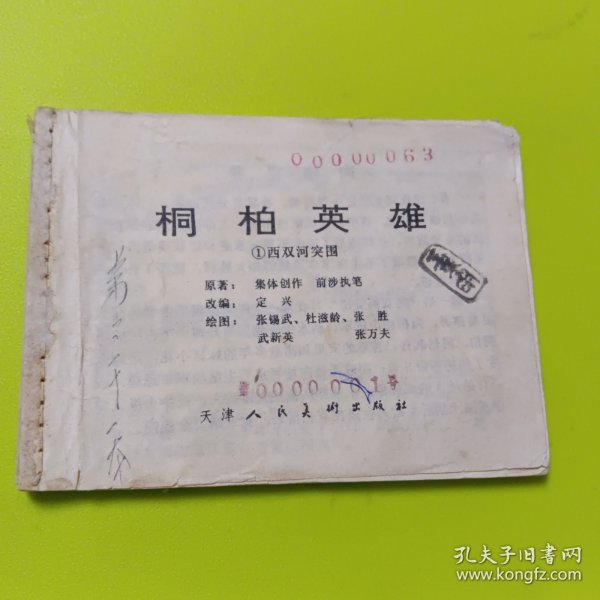 00000063
桐柏英雄
①西双河突围
原著： 集体创作 前涉执笔
改编： 定 兴
绘图： 张锡武、杜滋龄、张 胜
武新英 张万夫
天津人民美術出版社
孔夫子旧书网
www.kongfz.com